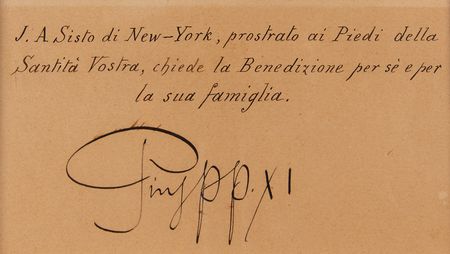 J. A. Sisto di New-York, prostrato ai Piedi della
Santità Vostra, chiede la Benedizione per sè e per
la sua famiglia.
Pius PP. XI